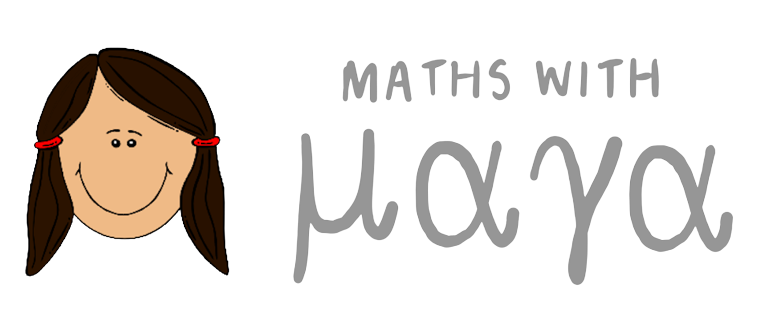 MATHS WITH
μαγα